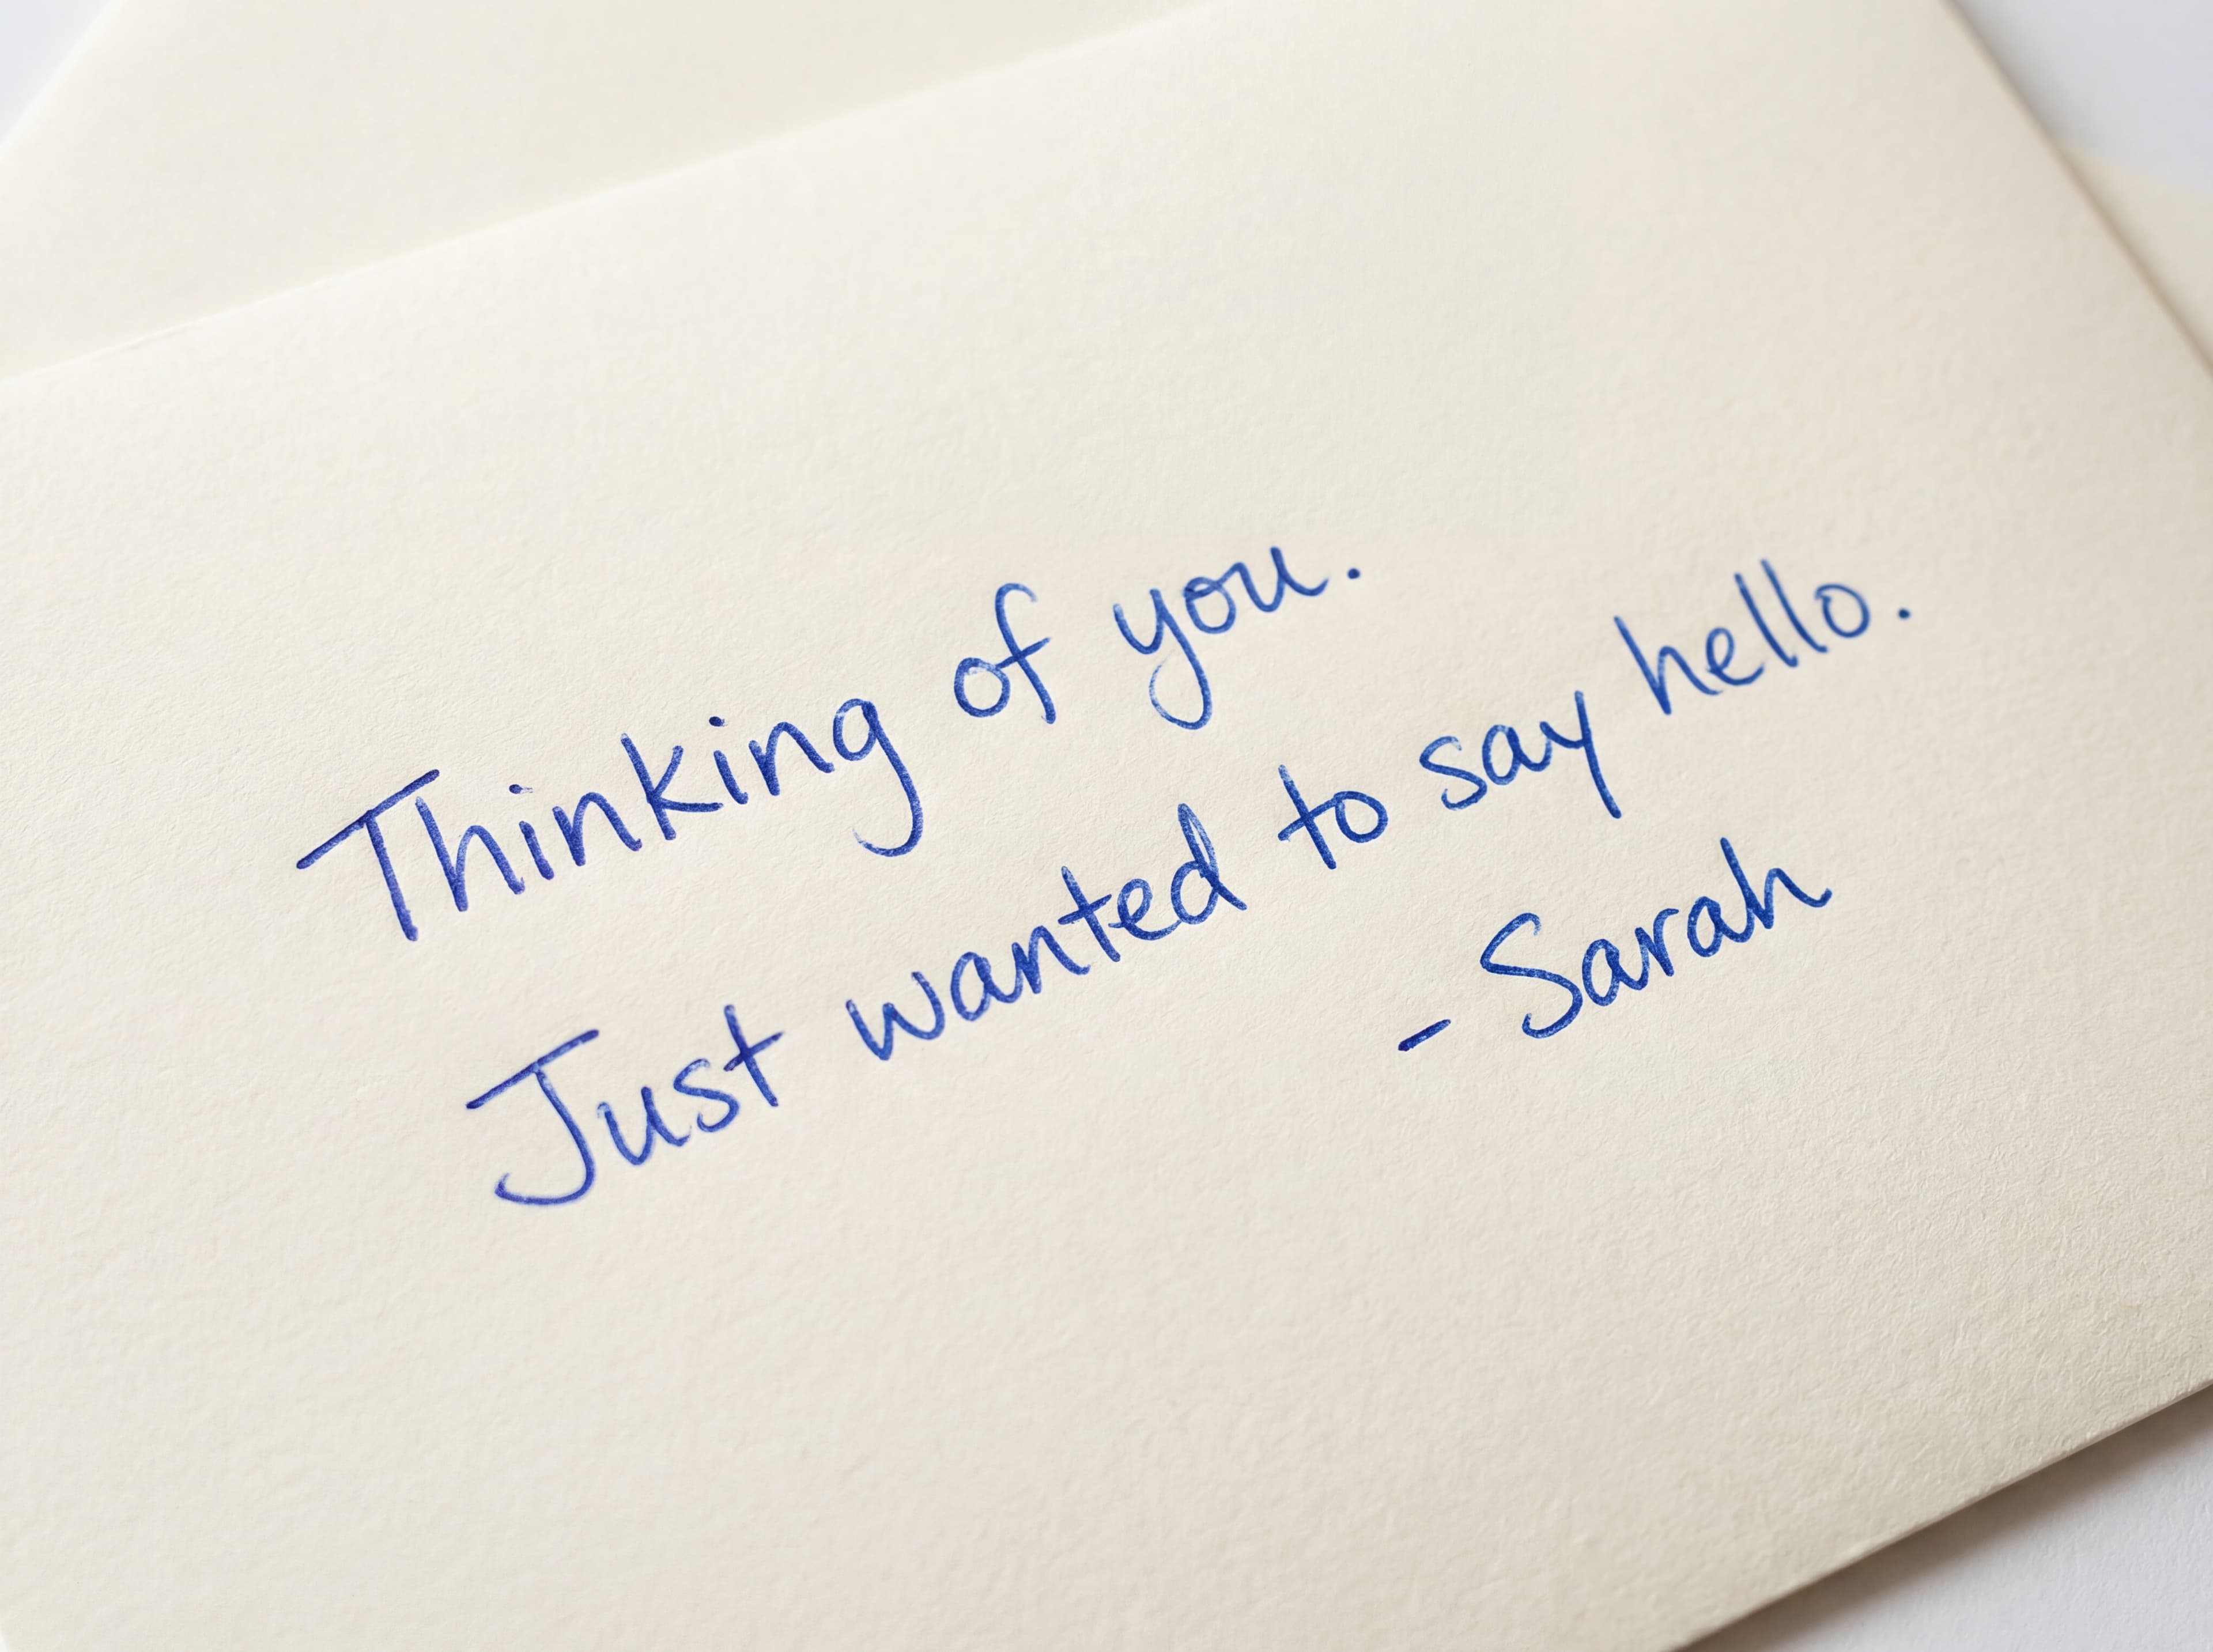 Thinking of you.
Just wanted to say hello.
- Sarah